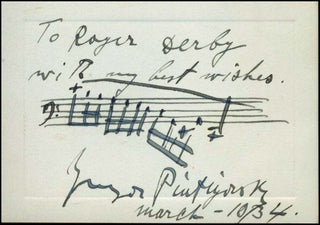 To Roger Derby
with my best wishes.
Gregor Piatigorsky
march - 10/34.